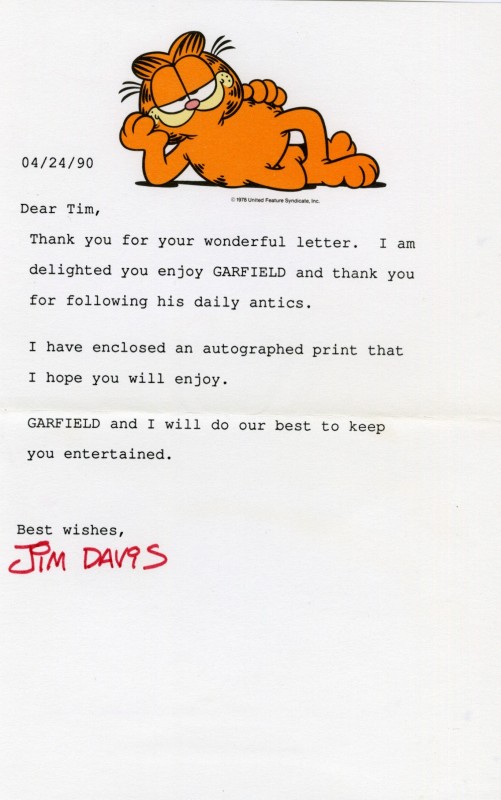 04/24/90
© 1978 United Feature Syndicate, Inc.
Dear Tim,
Thank you for your wonderful letter. I am
delighted you enjoy GARFIELD and thank you
for following his daily antics.
I have enclosed an autographed print that
I hope you will enjoy.
GARFIELD and I will do our best to keep
you entertained.
Best wishes,
JIM DAVIS